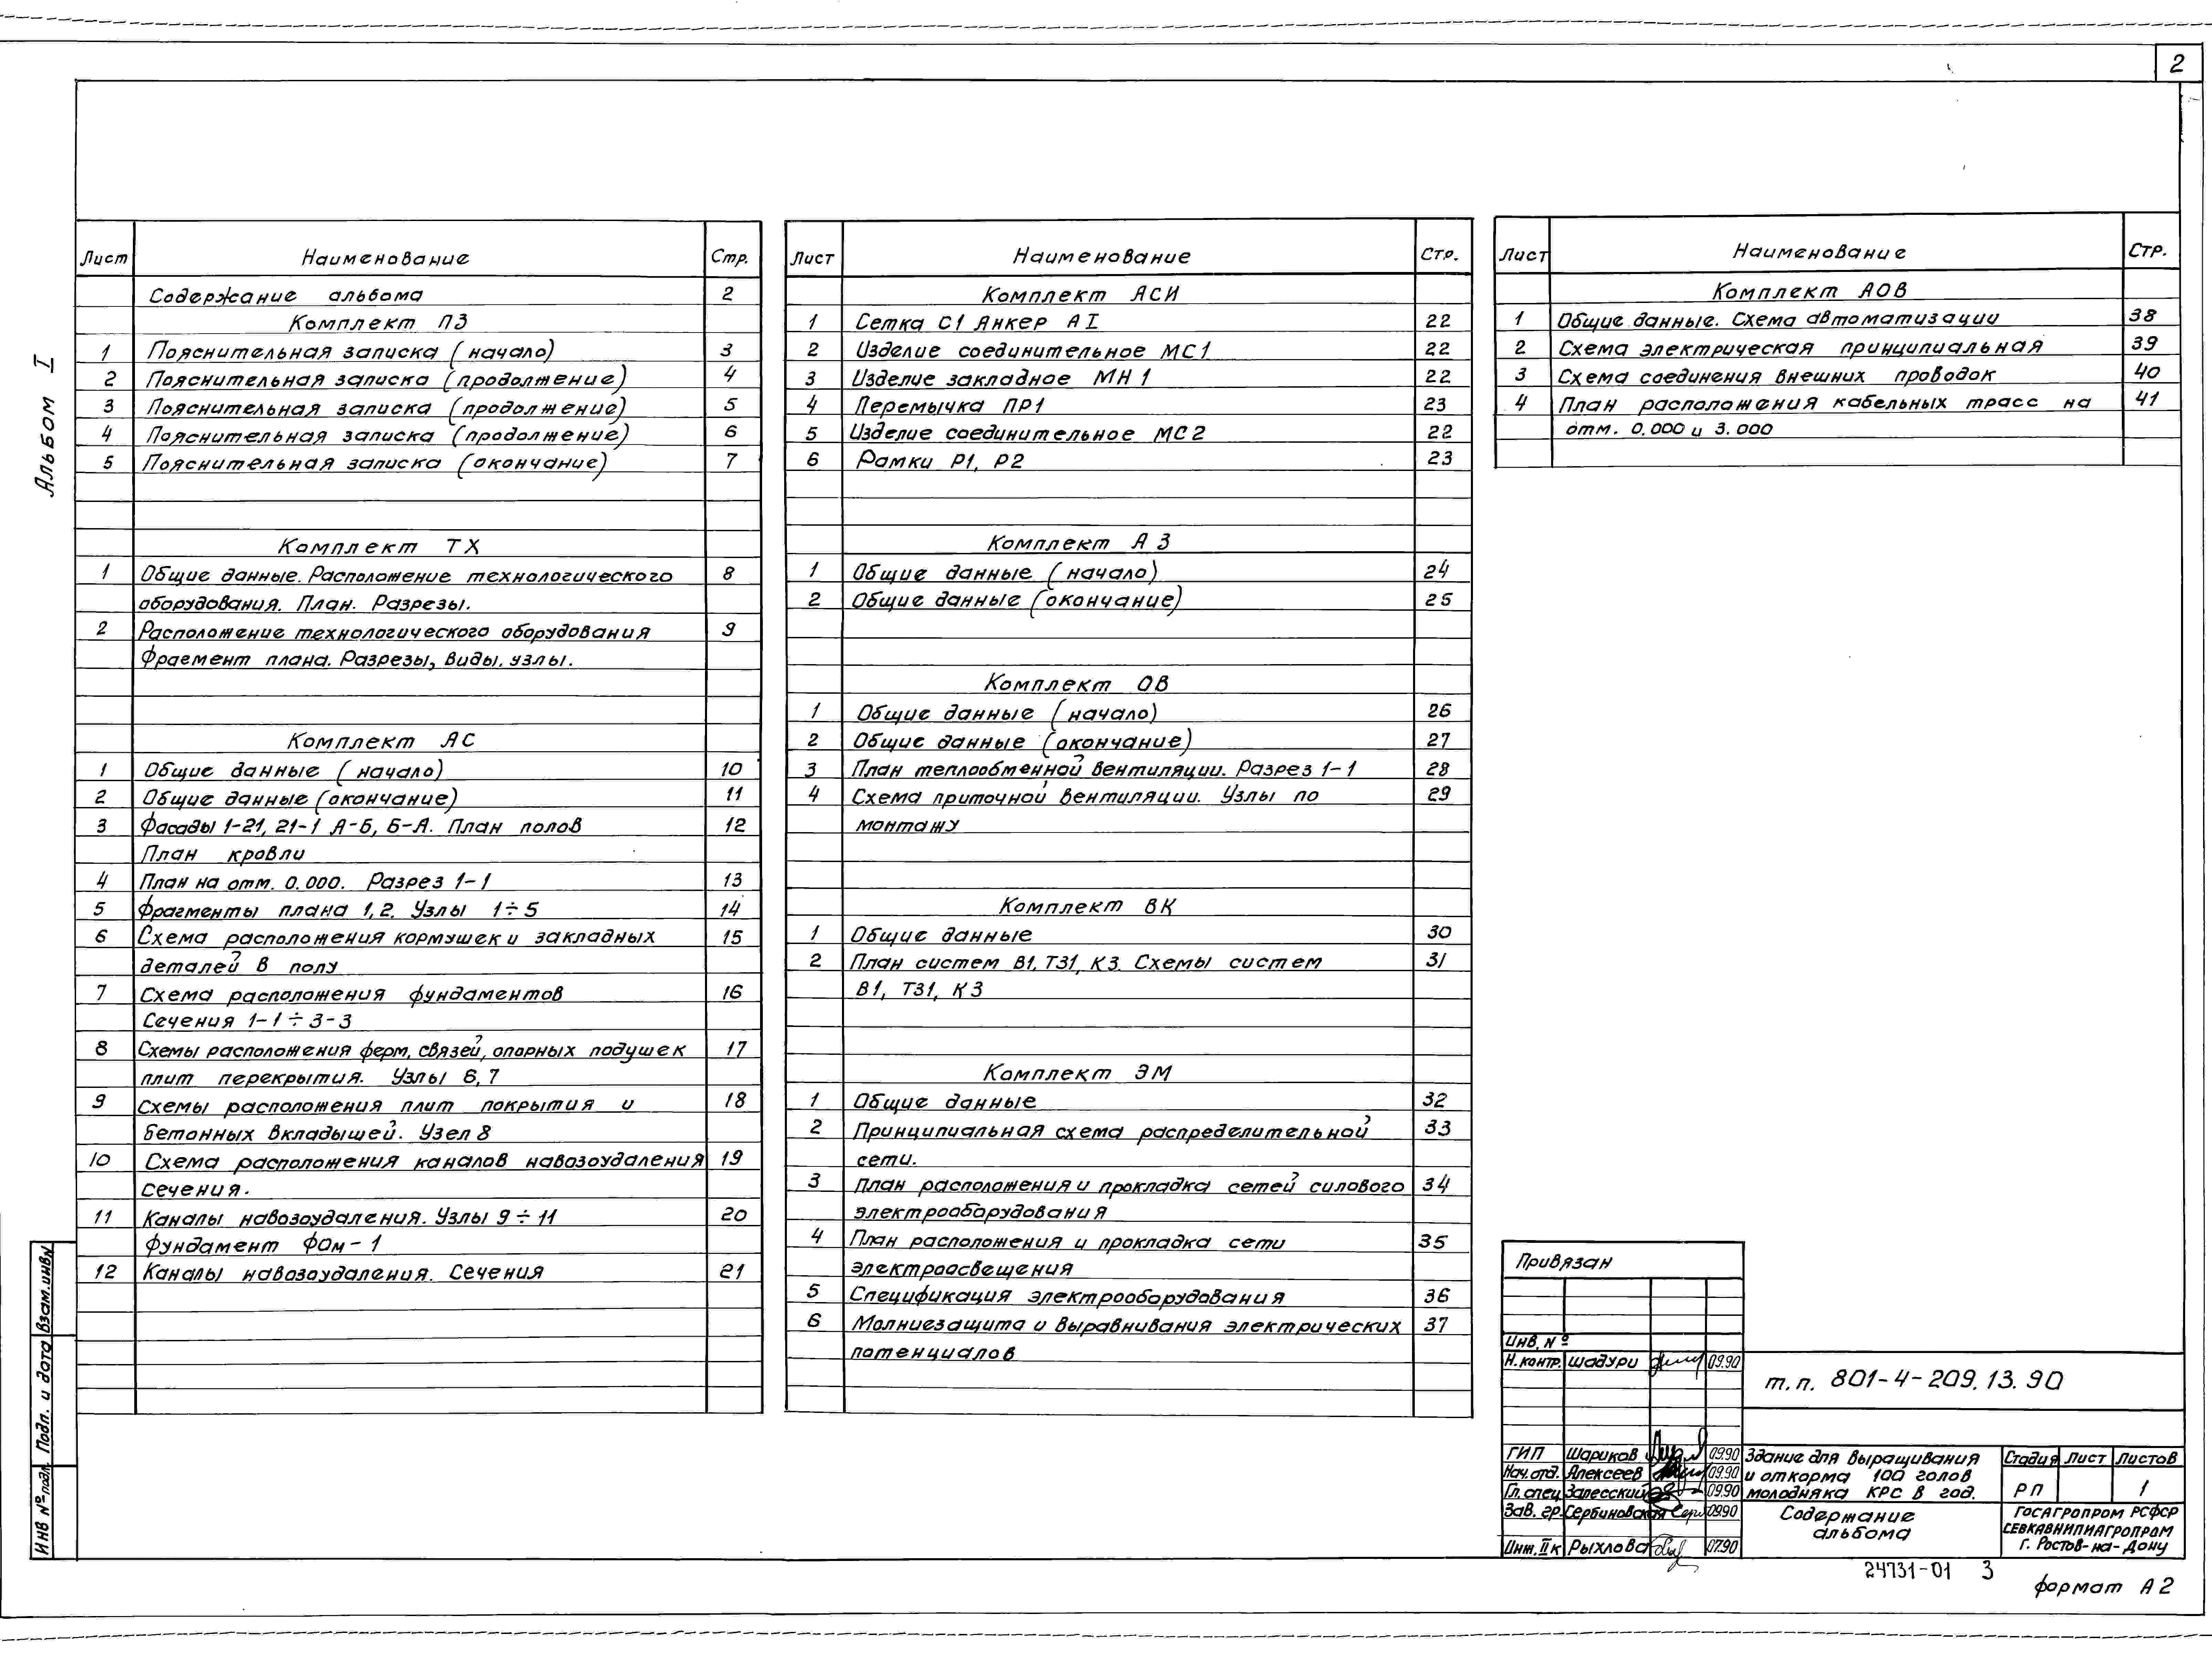 2
Альбом I
Лист Наименование Стр.
Содержание альбома 2
Комплект ПЗ
1 Пояснительная записка (начало) 3
2 Пояснительная записка (продолжение) 4
3 Пояснительная записка (продолжение) 5
4 Пояснительная записка (продолжение) 6
5 Пояснительная записка (окончание) 7
Комплект ТХ
1 Общие данные. Расположение технологического 8
оборудования. План. Разрезы.
2 Расположение технологического оборудования 9
Фрагмент плана. Разрезы, виды. узлы.
Комплект АС
1 Общие данные (начало) 10
2 Общие данные (окончание) 11
3 Фасады 1-21, 21-1 А-Б, Б-А. План полов 12
План кровли
4 План на отм. 0.000. Разрез 1-1 13
5 Фрагменты плана 1,2. Узлы 1÷5 14
6 Схема расположения кормушек и закладных 15
деталей в полу
7 Схема расположения фундаментов 16
Сечения 1-1÷3-3
8 Схемы расположения ферм, связей, опорных подушек 17
плит перекрытия. Узлы 6,7
9 Схемы расположения плит покрытия и 18
бетонных вкладышей. Узел 8
10 Схема расположения каналов навозоудаления 19
Сечения.
11 Каналы навозоудаления. Узлы 9÷11 20
Фундамент ФОм-1
12 Каналы навозоудаления. Сечения 21
Лист Наименование Стр.
Комплект АСИ
1 Сетка С1 Анкер АI 22
2 Изделие соединительное МС1 22
3 Изделие закладное МН1 22
4 Перемычка ПР1 23
5 Изделие соединительное МС2 22
6 Рамки Р1, Р2 23
Комплект АЗ
1 Общие данные (начало) 24
2 Общие данные (окончание) 25
Комплект ОВ
1 Общие данные (начало) 26
2 Общие данные (окончание) 27
3 План теплообменной вентиляции. Разрез 1-1 28
4 Схема приточной вентиляции. Узлы по 29
монтажу
Комплект ВК
1 Общие данные 30
2 План систем В1, Т31, К3. Схемы систем 31
В1, Т31, К3
Комплект ЭМ
1 Общие данные 32
2 Принципиальная схема распределительной 33
сети.
3 План расположения и прокладка сетей силового 34
электрооборудования
4 План расположения и прокладка сети 35
электроосвещения
5 Спецификация электрооборудования 36
6 Молниезащита и выравнивания электрических 37
потенциалов
Лист Наименование Стр.
Комплект АОВ
1 Общие данные. Схема автоматизации 38
2 Схема электрическая принципиальная 39
3 Схема соединения внешних проводок 40
4 План расположения кабельных трасс на 41
отм. 0.000 и 3.000
Инв № подл. Подп. и дата Взам. инв N
Привязан
Инв. №
Н. контр. Шадури 09.90
т.п. 801-4-209.13.90
ГИП Шариков 09.90
Нач. отд. Алексеев 09.90
Гл. спец Залесский 09.90
Зав. гр. Сербиновская 09.90
Инж. II к Рыхлова 07.90
Здание для выращивания
и откорма 100 голов
молодняка КРС в год.
Стадия Лист Листов
РП 1
Содержание
альбома
ГОСАГРОПРОМ РСФСР
СЕВКАВНИПИАГРОПРОМ
г. Ростов-на-Дону
24731-01 3
формат А2